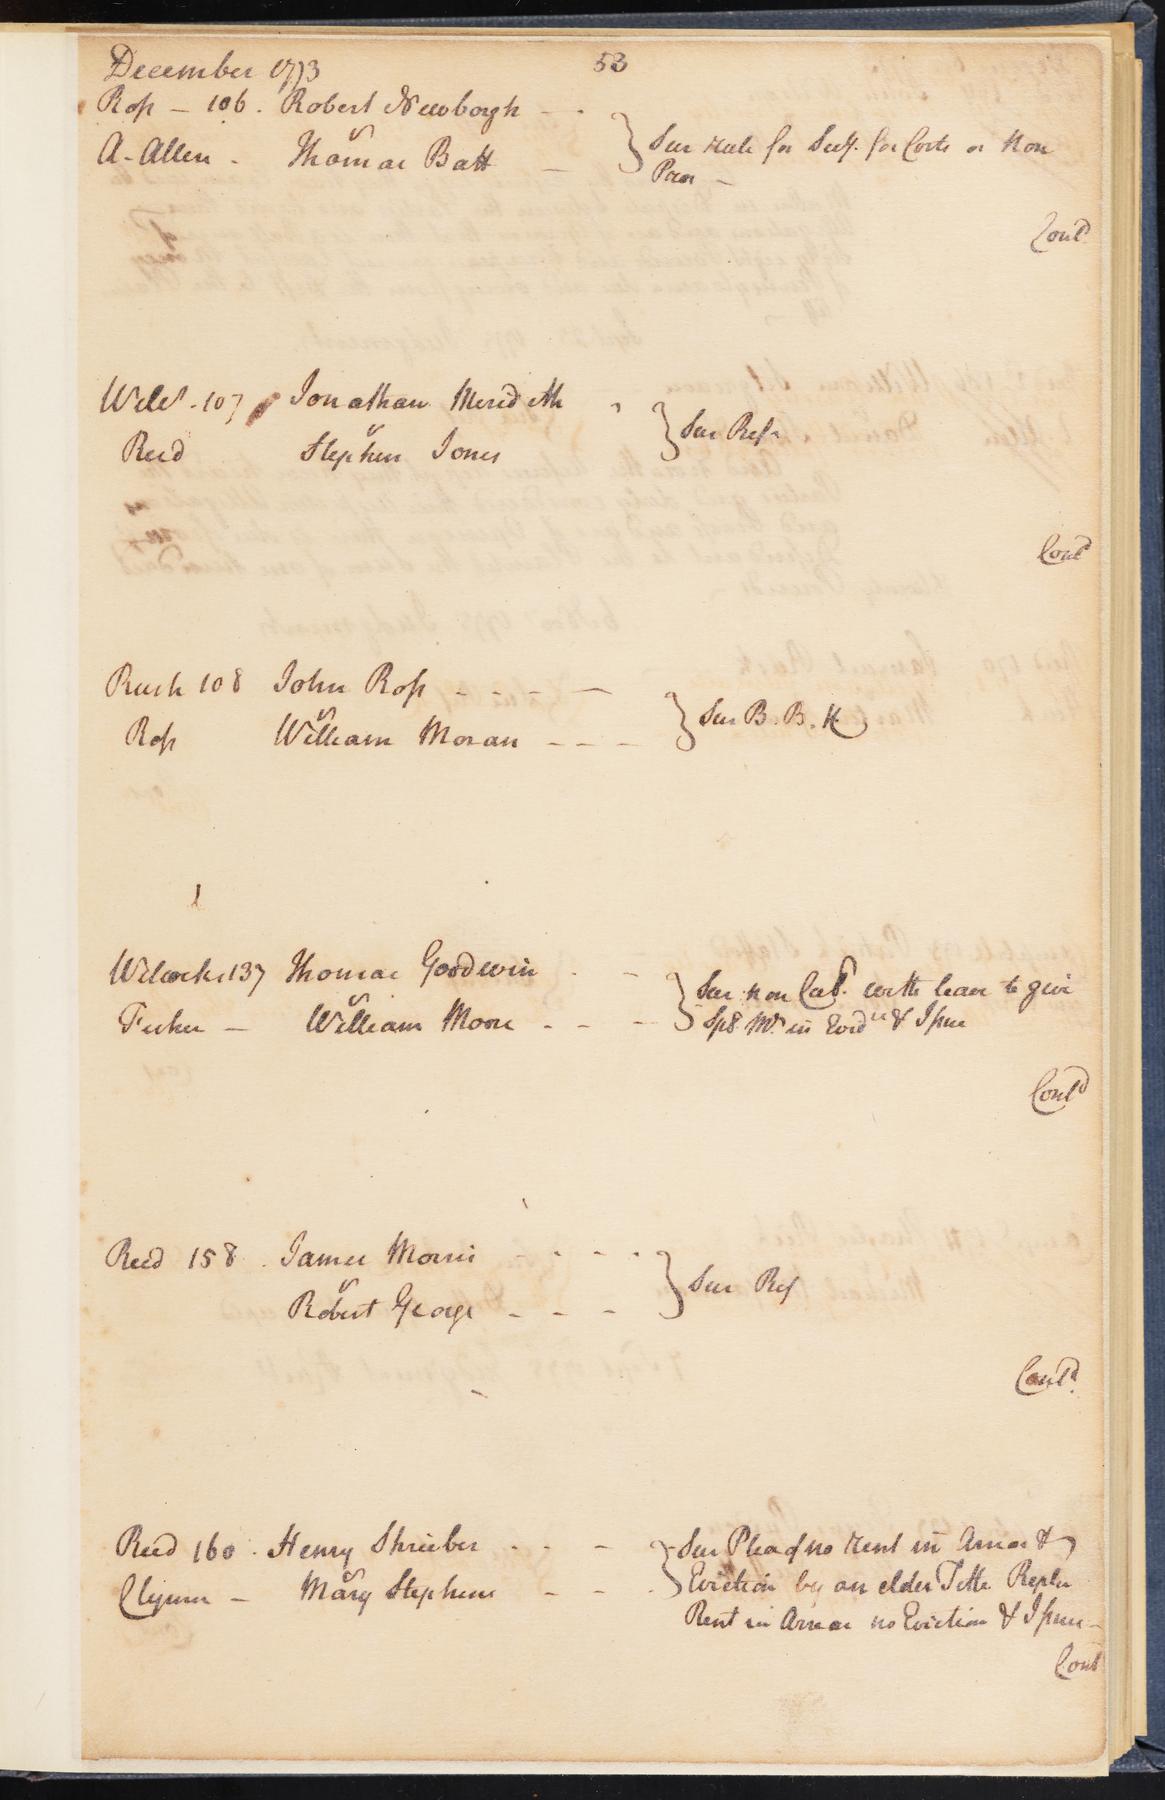 December 1773
53
Ross - 106. Robert Newborgh - -
vs
A - Allen - Thomas Batt -
Sur Rule for Secy. for Costs or Non
Pros -
Cont'd
Wilcs. 107 Jonathan Meridith
vs
Reed Stephen Jones
Sur Refs
Cont'd
Rush 108 John Ross - - - -
vs
Ross William Moran - - -
Sur B. B. H
Wilcocks 137 Thomas Goodwin - -
vs
Fisher - William Moore - - -
Sur non Cul. with leave to give
Spl. Mr. in Evidce & Issue
Cont'd
Reed 158. James Morris - - - -
vs
Robert George - - -
Sur Ref
Cont'd.
Reed 160. Henry Shrieber - - -
vs
Clymer - Mary Stephens - - -
Sur Plea of no Rent in Arrear &
Eviction by an elder Title Replon
Rent in Arrear no Eviction & Issue -
Cont